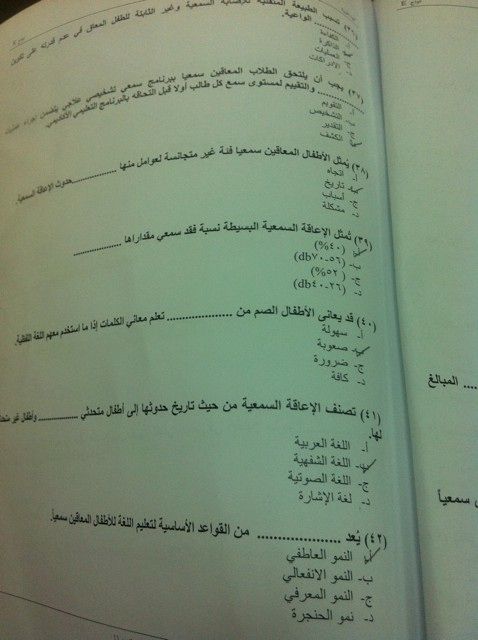 نموذج E
(٣٦) تسبب الطبيعة المتقلبة للإصابة السمعية وغير الثابتة للطفل المعاق في عدم قدرته على تكوين
............ الواعية.
أ- الكفاءة
ب- الذاكرة
ج- العمليات
د- الإدراكات
(٣٧) يجب أن يلتحق الطلاب المعاقين سمعيا ببرنامج سمعي تشخيصي علاجي يتضمن إجراء عمليات
............ والتقييم لمستوى سمع كل طالب أولا قبل التحاقه بالبرنامج التعليمي الأكاديمي.
أ- التقويم
ب- التشخيص
ج- التقدير
د- الكشف
(٣٨) يُمثل الأطفال المعاقين سمعيا فئة غير متجانسة لعوامل منها ............ حدوث الإعاقة السمعية.
أ- اتجاه
ب- تاريخ
ج- أسباب
د- مشكلة
(٣٩) تُمثل الإعاقة السمعية البسيطة نسبة فقد سمعي مقدارها ............
أ- (٤٠%)
ب- (٥٦-٧٠db)
ج- (٥٢%)
د- (٢٦-٤٠db)
(٤٠) قد يعاني الأطفال الصم من .................. تعلم معاني الكلمات إذا ما استخدم معهم اللغة اللفظية.
أ- سهولة
ب- صعوبة
ج- ضرورة
د- كافة
(٤١) تصنف الإعاقة السمعية من حيث تاريخ حدوثها إلى أطفال متحدثي ............ وأطفال غير
لها.
أ- اللغة العربية
ب- اللغة الشفهية
ج- اللغة الصوتية
د- لغة الإشارة
(٤٢) يُعد .................. من القواعد الأساسية لتعليم اللغة للأطفال المعاقين سمعياً.
أ- النمو العاطفي
ب- النمو الانفعالي
ج- النمو المعرفي
د- نمو الحنجرة
نموذج E
.... المبالغ
سمعياً